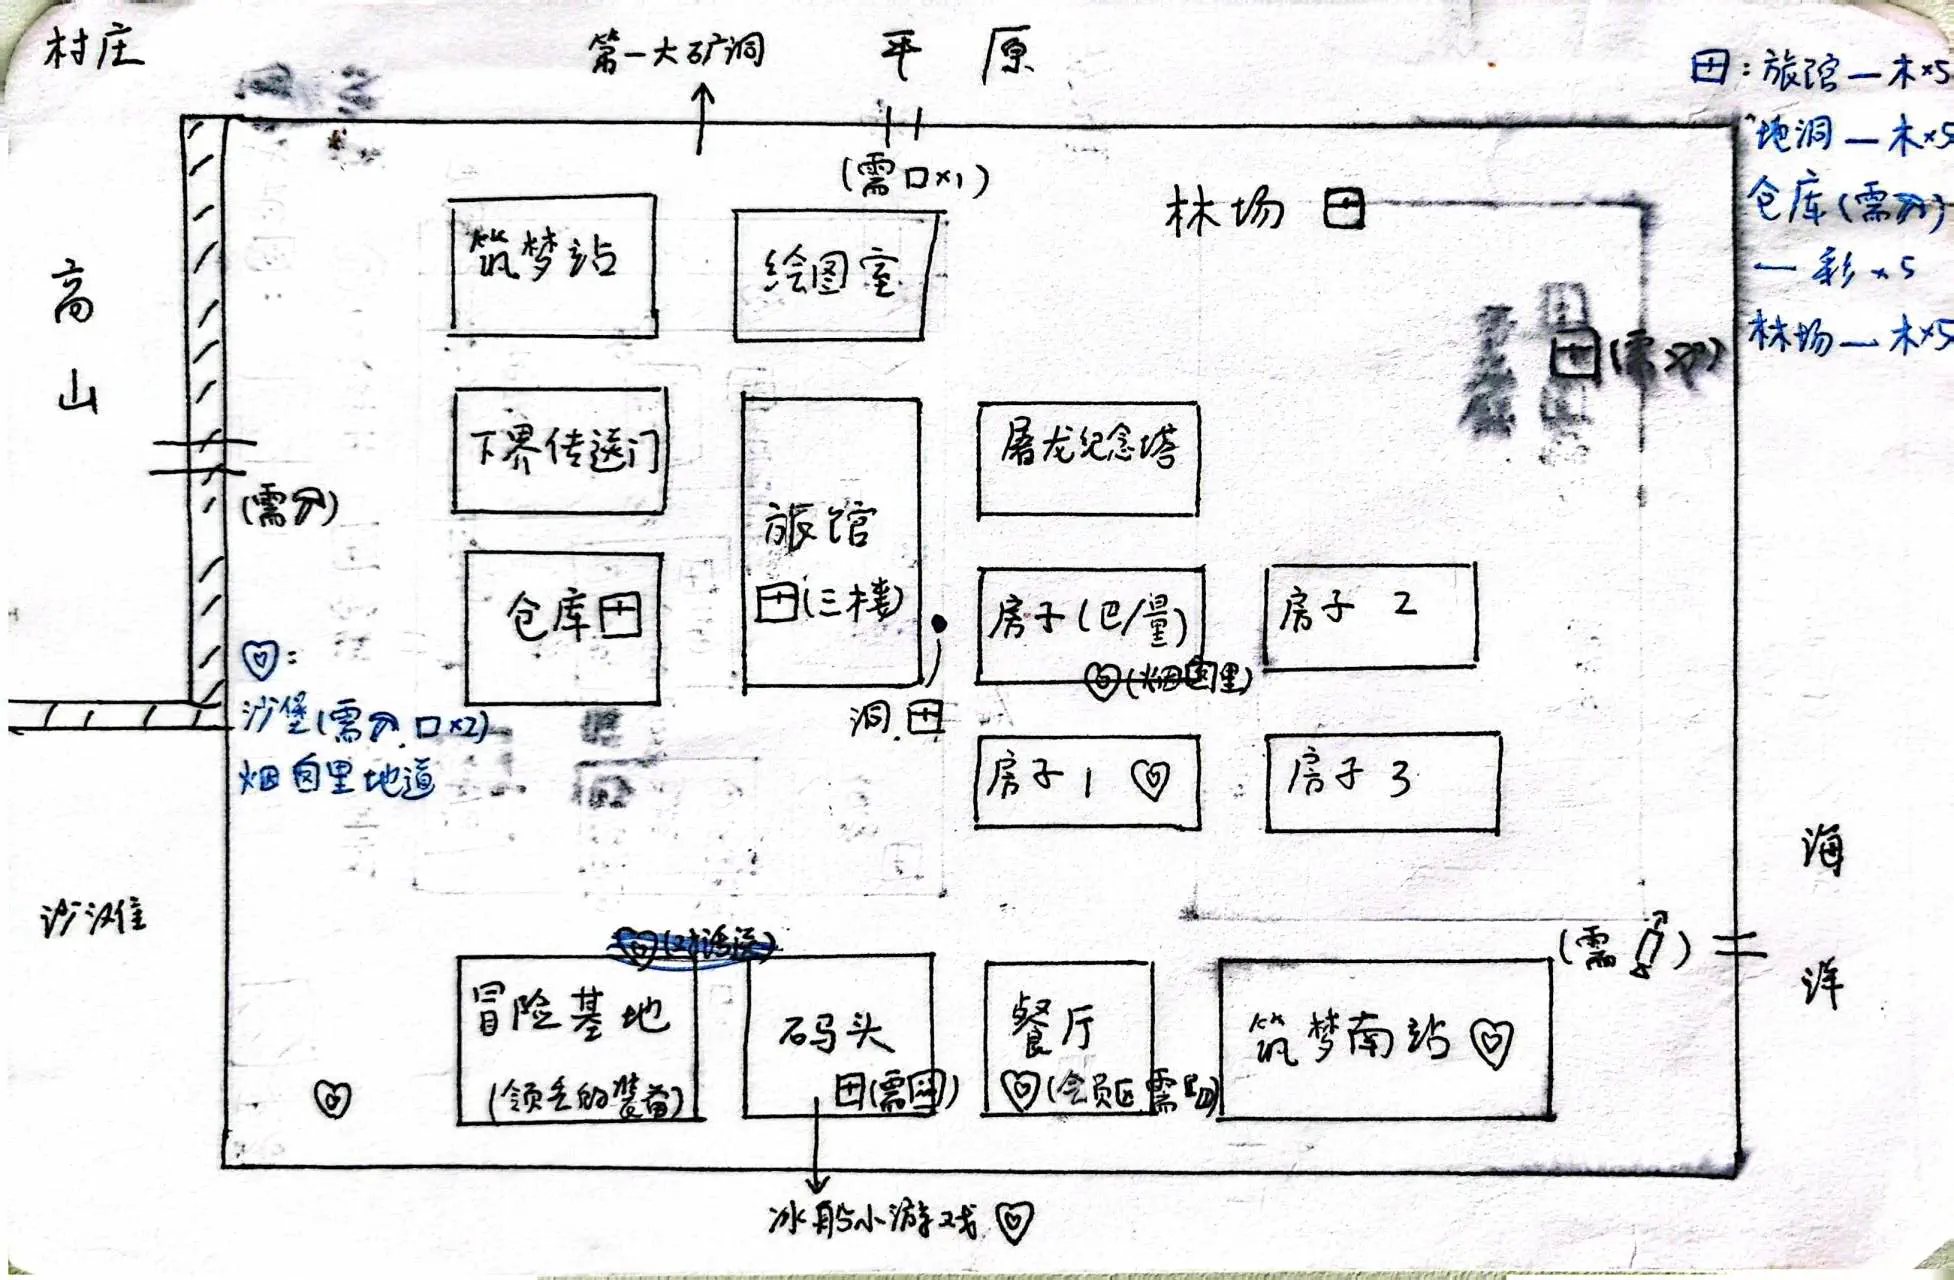 村庄
第一大矿洞
平原
田:旅馆—木×5
地洞—木×5
仓库(需
—彩×5
林场—木×5
(需口×1)
林场 田
高山
筑梦站
绘图室
田(需
下界传送门
屠龙纪念塔
(需
旅馆
田(三楼)
仓库田
房子(巴/量)
(烟囱里)
房子 2
沙堡(需 口×2)
烟囱里地道
洞 田
房子 1
房子 3
海洋
沙滩
(需
冒险基地
(领丢的装备)
码头
田(需
餐厅
(会员区需
筑梦南站
冰船小游戏